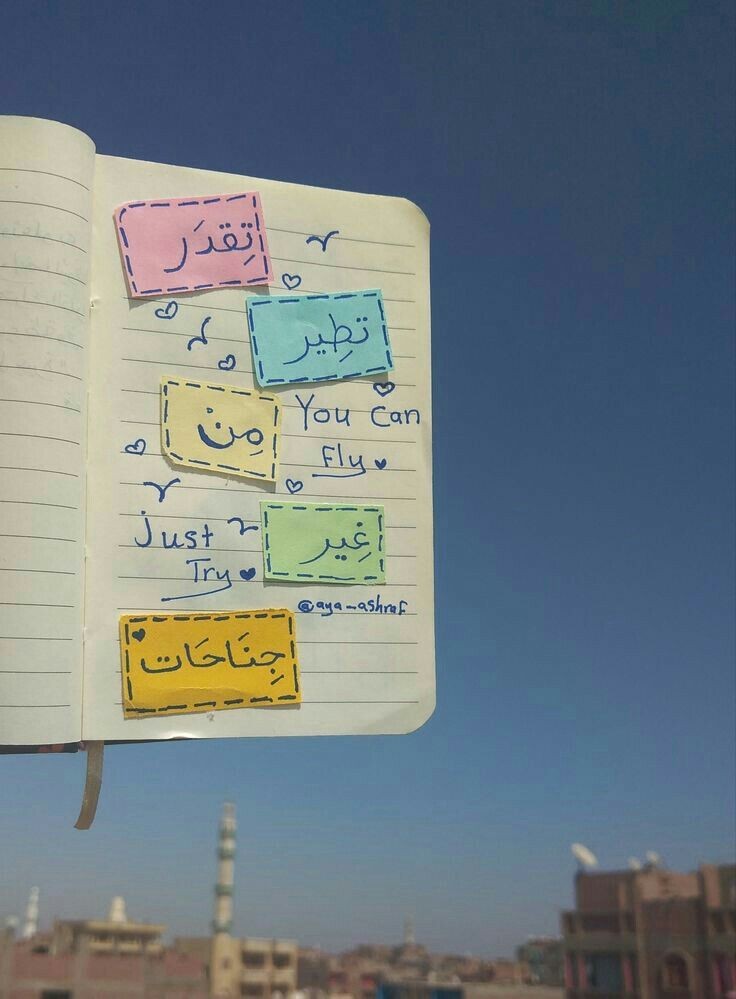 تِقدَر
تطِير
مِنْ
You can
Fly
غِير
just
Try
@aya_ashraf
جِنَاحَات